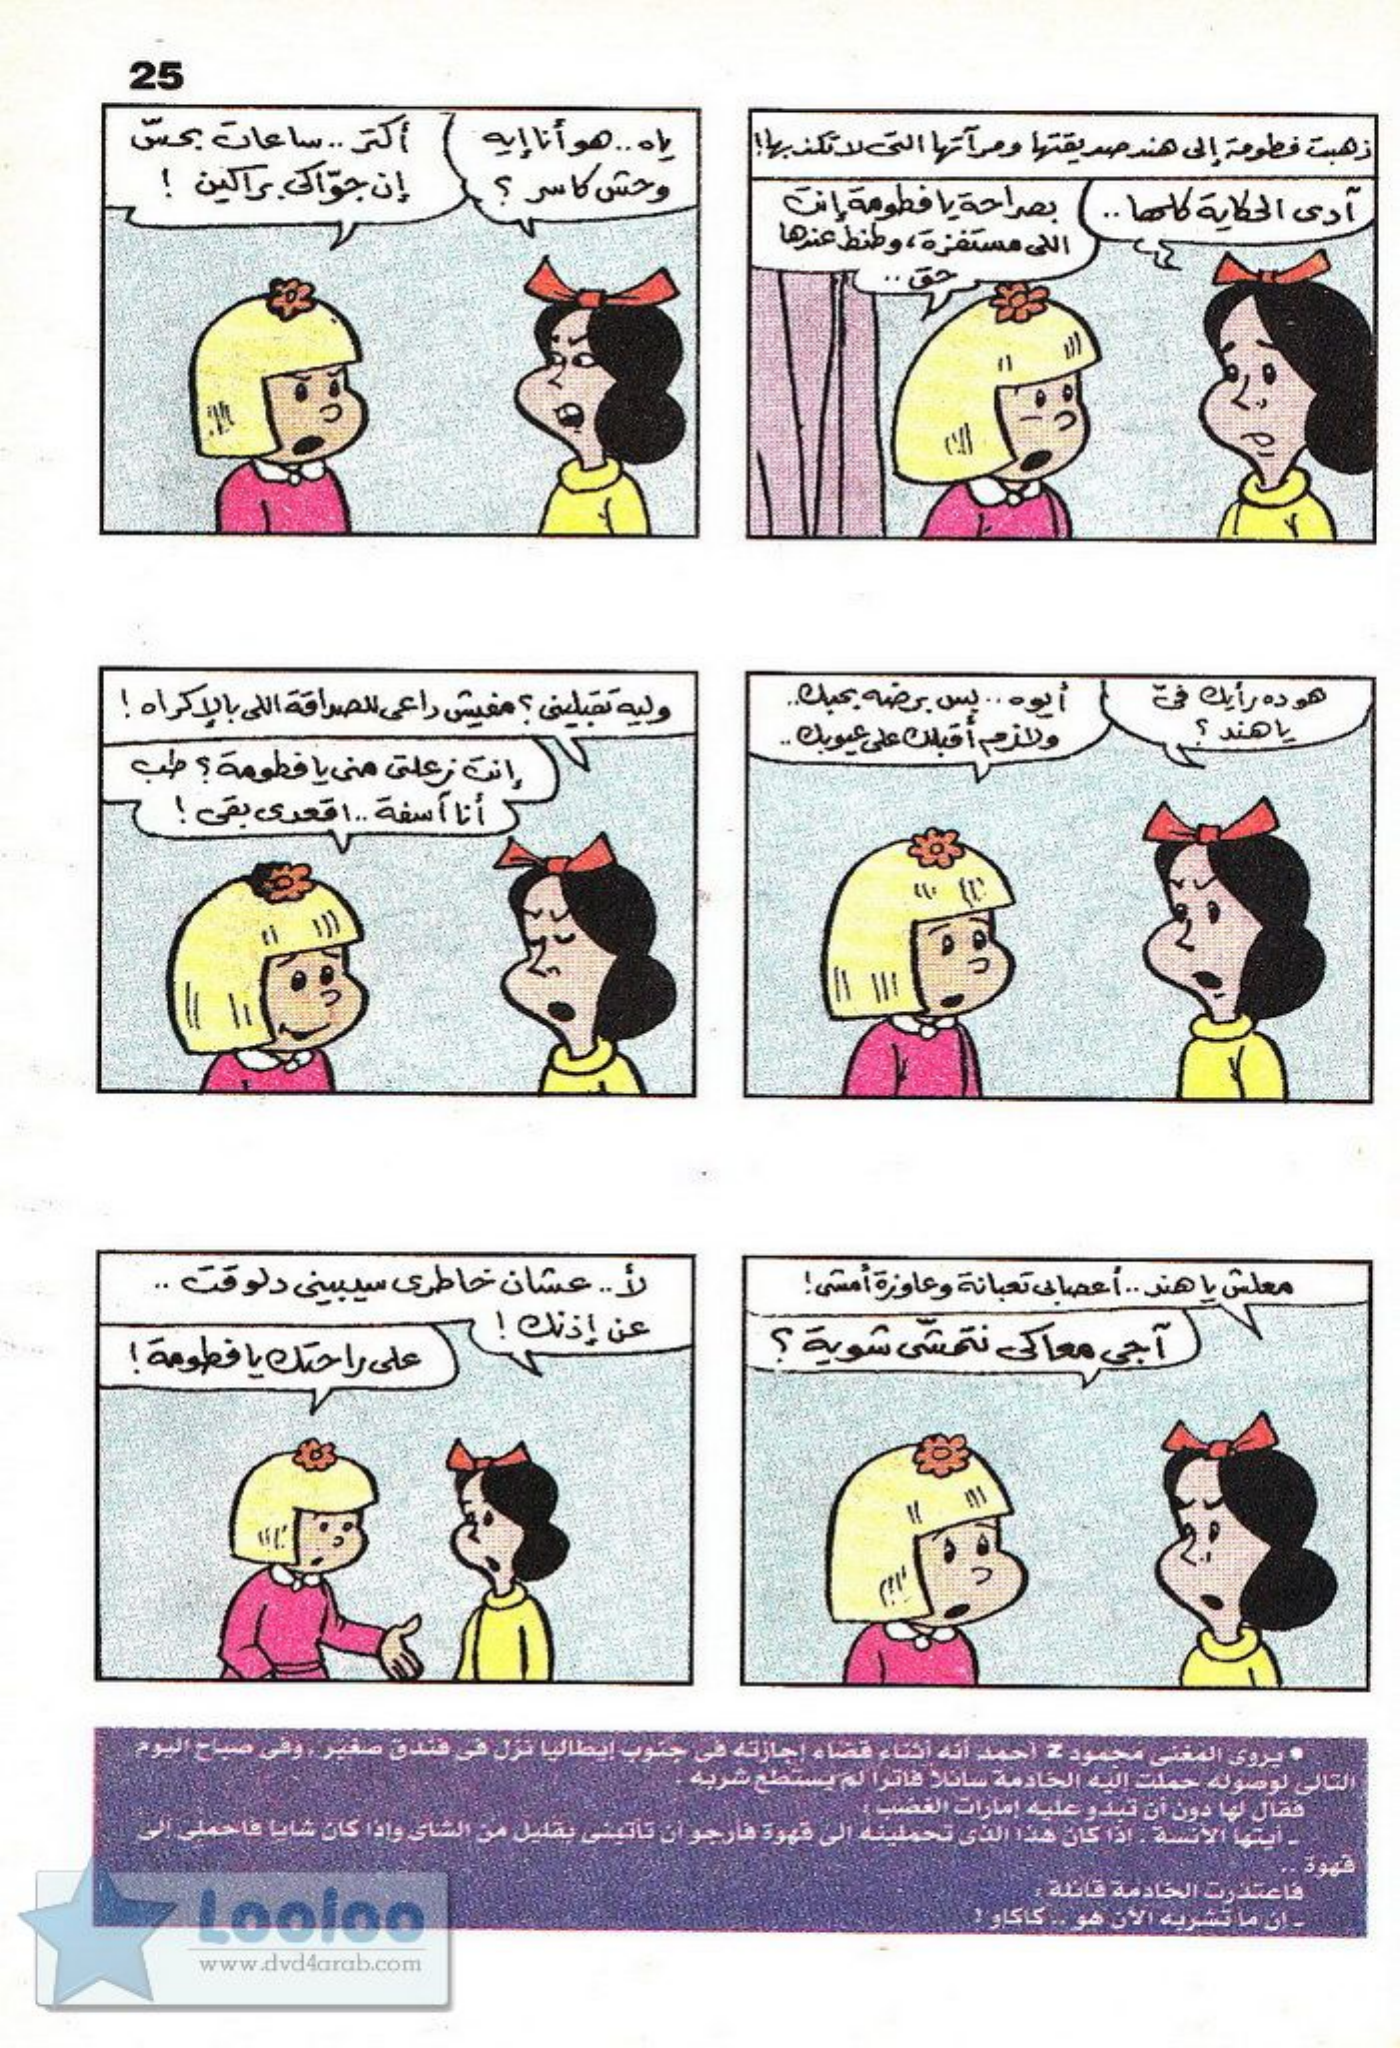 25
ذهبت فطومة إلى هند صديقتها ومرآتها التى لا تكذبها!
آدى الحكاية كلها ..
بصراحة يا فطومة إنت
اللى مستفزة، وطنط عندها
حق ..
ياه .. هو أنا إيه
وحش كاسر ؟
أكتر .. ساعات بحسّ
إن جوّاكى براكين !
هو ده رأيك فىّ
يا هند ؟
أيوه .. بس برضه بحبك ..
ولازم أقبلك على عيوبك ..
وليه تقبلينى ؟ مفيش داعى للصداقة اللى بالإكراه !
إنت زعلتى منى يا فطومة ؟ طب
أنا آسفة .. اقعدى بقى !
معلش يا هند .. أعصابى تعبانة وعاوزة أمشى !
آجى معاكى نتمشّى شوية ؟
لأ .. عشان خاطرى سيبينى دلوقت ..
عن إذنك !
على راحتك يا فطومة !
• يروى المغنى محمود z أحمد أنه أثناء قضاء إجازته فى جنوب إيطاليا نزل فى فندق صغير . وفى صباح اليوم
التالى لوصوله حملت إليه الخادمة سائلا فاترا لم يستطع شربه .
فقال لها دون أن تبدو عليه إمارات الغضب :
- أيتها الآنسة . إذا كان هذا الذى تحملينه إلى قهوة فأرجو أن تأتينى بقليل من الشاى وإذا كان شايا فاحملى إلى
قهوة ..
فاعتذرت الخادمة قائلة :
- إن ما تشربه الآن هو .. كاكاو !
Looloo
www.dvd4arab.com